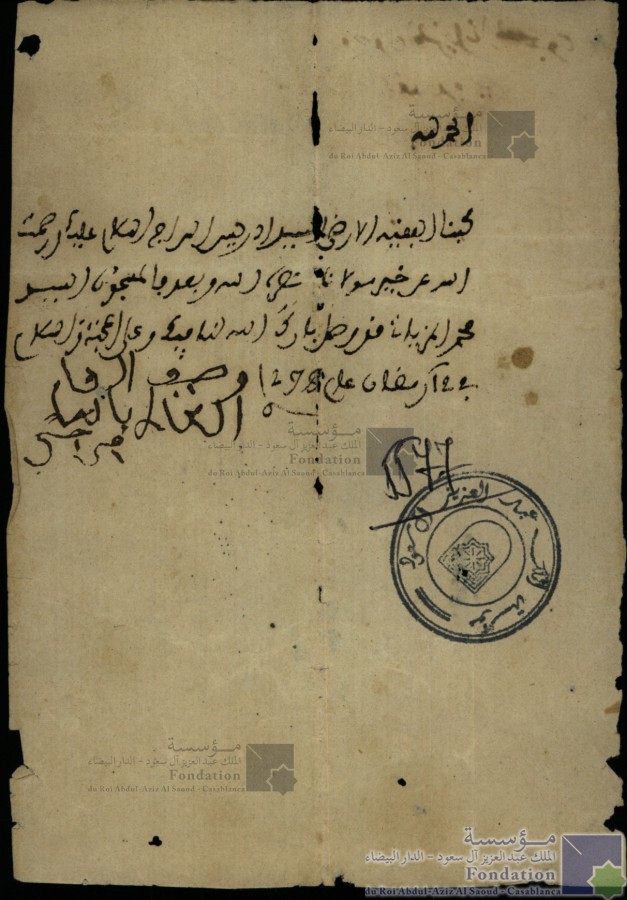 الحمد لله
محبنا الفقيه الارضى السيد ادريس السراج السلام عليك ورحمت
الله عن خير مولانا نصره الله وبعد فالمسجون السيد
محمد المزياني قد وصل بارك الله لنا فيك وعلى المحبة والسلام
في 22 رمضان على 1298
وصيف
بالله
577
مؤسسة الملك عبد العزيز آل سعود
مؤسسة
الملك عبد العزيز آل سعود - الدار البيضاء
Fondation
du Roi Abdul-Aziz Al Saoud - Casablanca
مؤسسة
الملك عبد العزيز آل سعود - الدار البيضاء
Fondation
du Roi Abdul-Aziz Al Saoud - Casablanca
مؤسسة
الملك عبد العزيز آل سعود - الدار البيضاء
Fondation
du Roi Abdul-Aziz Al Saoud - Casablanca
مؤسسة
الملك عبد العزيز آل سعود - الدار البيضاء
Fondation
du Roi Abdul-Aziz Al Saoud - Casablanca